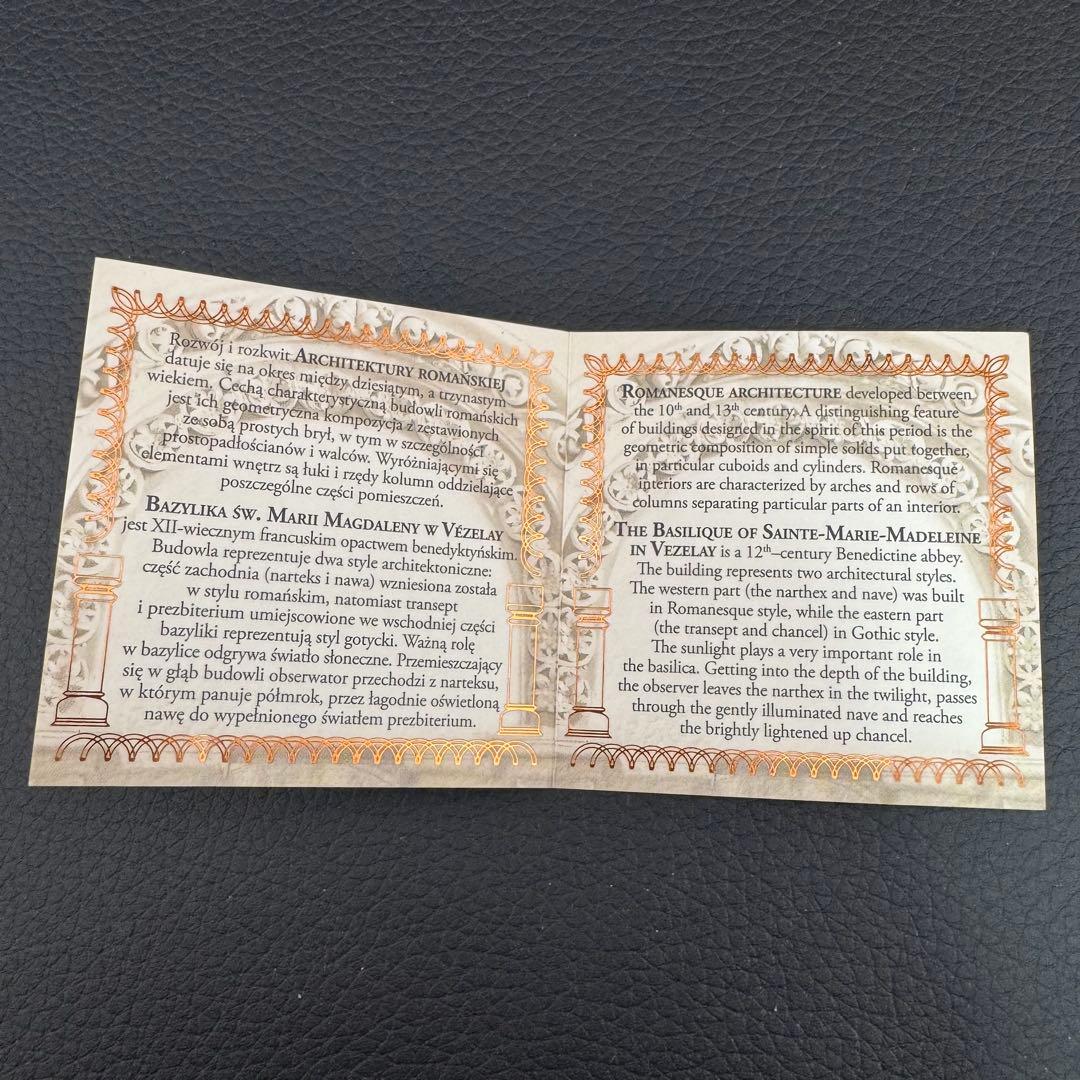 Rozwój i rozkwit ARCHITEKTURY ROMAŃSKIEJ
datuje się na okres między dziesiątym, a trzynastym
wiekiem. Cechą charakterystyczną budowli romańskich
jest ich geometryczna kompozycja z zestawionych
ze sobą prostych brył, w tym w szczególności
prostopadłościanów i walców. Wyróżniającymi się
elementami wnętrz są łuki i rzędy kolumn oddzielające
poszczególne części pomieszczeń.
BAZYLIKA ŚW. MARII MAGDALENY W VÉZELAY
jest XII-wiecznym francuskim opactwem benedyktyńskim.
Budowla reprezentuje dwa style architektoniczne:
część zachodnia (narteks i nawa) wzniesiona została
w stylu romańskim, natomiast transept
i prezbiterium umiejscowione we wschodniej części
bazyliki reprezentują styl gotycki. Ważną rolę
w bazylice odgrywa światło słoneczne. Przemieszczający
się w głąb budowli obserwator przechodzi z narteksu,
w którym panuje półmrok, przez łagodnie oświetloną
nawę do wypełnionego światłem prezbiterium.
ROMANESQUE ARCHITECTURE developed between
the 10th and 13th century. A distinguishing feature
of buildings designed in the spirit of this period is the
geometric composition of simple solids put together,
in particular cuboids and cylinders. Romanesque
interiors are characterized by arches and rows of
columns separating particular parts of an interior.
THE BASILIQUE OF SAINTE-MARIE-MADELEINE
IN VEZELAY is a 12th–century Benedictine abbey.
The building represents two architectural styles.
The western part (the narthex and nave) was built
in Romanesque style, while the eastern part
(the transept and chancel) in Gothic style.
The sunlight plays a very important role in
the basilica. Getting into the depth of the building,
the observer leaves the narthex in the twilight, passes
through the gently illuminated nave and reaches
the brightly lightened up chancel.